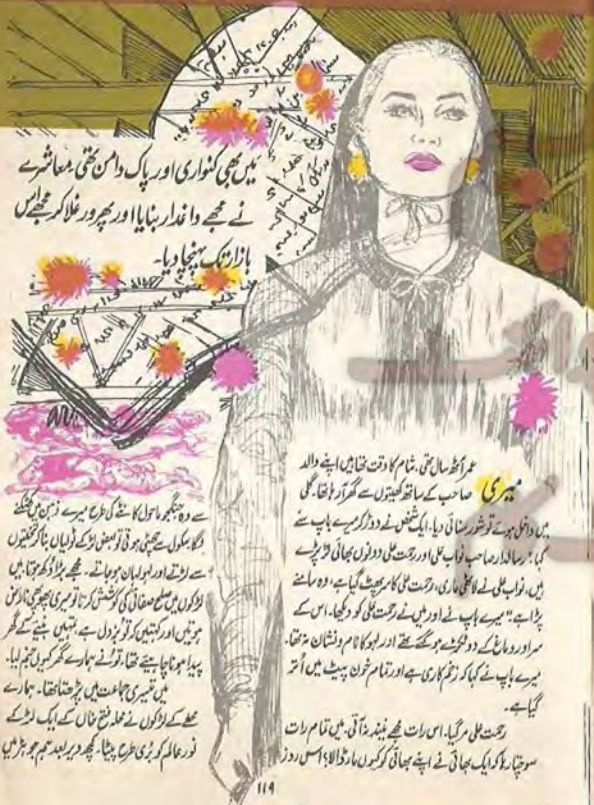 میں بھی کنواری اور پاک دامن تھی معاشرے
نے مجھے داغدار بنایا اور پھر ورغلا کر مجھے اس
بازار تک پہنچا دیا۔
میری عمر آٹھ سال تھی، شام کا وقت تھا میں اپنے والد
صاحب کے ساتھ کھیتوں سے گھر آ رہا تھا۔ گلی
میں داخل ہوئے تو شور سنائی دیا۔ ایک شخص نے دوڑ کر میرے باپ سے
کہا: رسالدار صاحب نواب علی اور رحمت علی دونوں بھائی لڑ پڑے
ہیں، نواب علی نے لاٹھی ماری، رحمت علی کا سر پھٹ گیا ہے، وہ سامنے
پڑا ہے" میرے باپ نے اور میں نے رحمت علی کو دیکھا۔ اس کے
سر اور دماغ کے دو ٹکڑے ہو گئے تھے اور لہو کا نام و نشان نہ تھا۔
میرے باپ نے کہا کہ زخم کاری ہے اور تمام خون پیٹ میں اُتر
گیا ہے۔
رحمت علی مر گیا۔ اس رات مجھے نیند نہ آئی۔ میں تمام رات
سوچتا رہا کہ ایک بھائی نے اپنے بھائی کو کیوں مار ڈالا؟ اس روز
سے وہ جنگجو ماحول کانٹے کی طرح میرے ذہن میں کھٹکنے
لگا سکول سے چھٹی ہوتی تو بعض لڑکے ٹولیاں بنا کر تختیوں
سے لڑتے اور لہولہان ہو جاتے۔ مجھے بڑا دُکھ ہوتا، میں
لڑکوں میں صلح صفائی کی کوشش کرتا تو میری پھوپھی ناراض
ہوتیں اور کہتیں کہ تُو بزدل ہے، تمہیں بنیے کے گھر
پیدا ہونا چاہیے تھا، تُو نے ہمارے گھر کیوں جنم لیا۔
میں تیسری جماعت میں پڑھتا تھا۔ ہمارے
محلے کے لڑکوں نے محلہ فتح خاں کے ایک لڑکے
نور عالم کو بُری طرح پیٹا۔ کچھ دیر بعد ہم جوہڑ میں
119